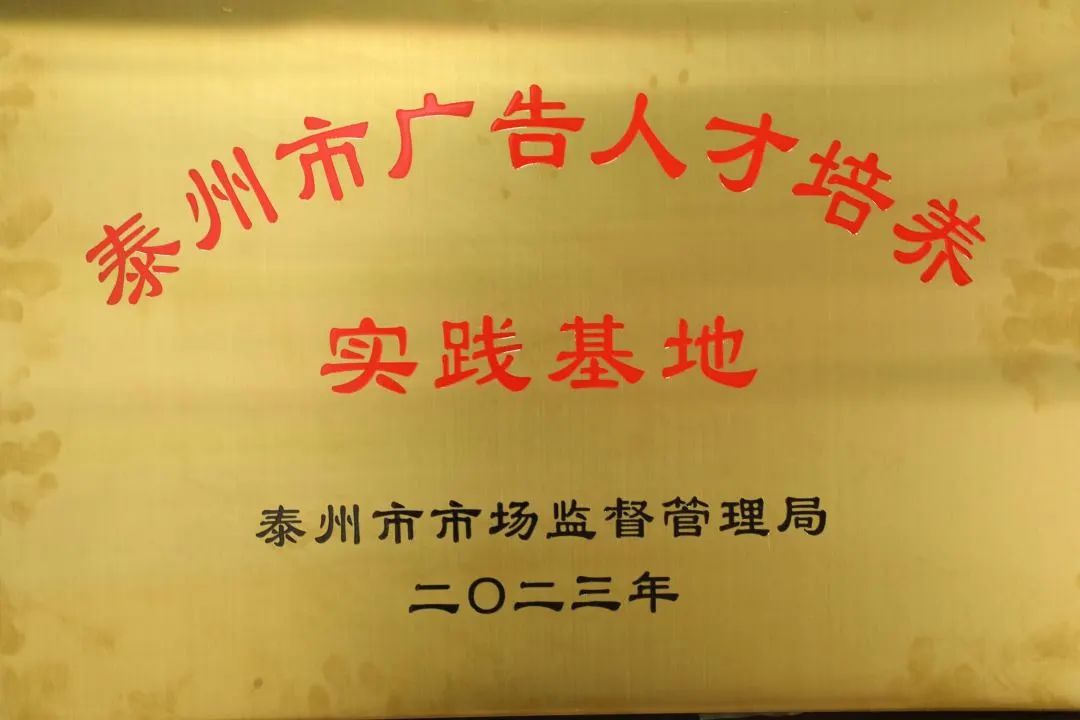 泰州市广告人才培养
实践基地
泰州市市场监督管理局
二〇二三年